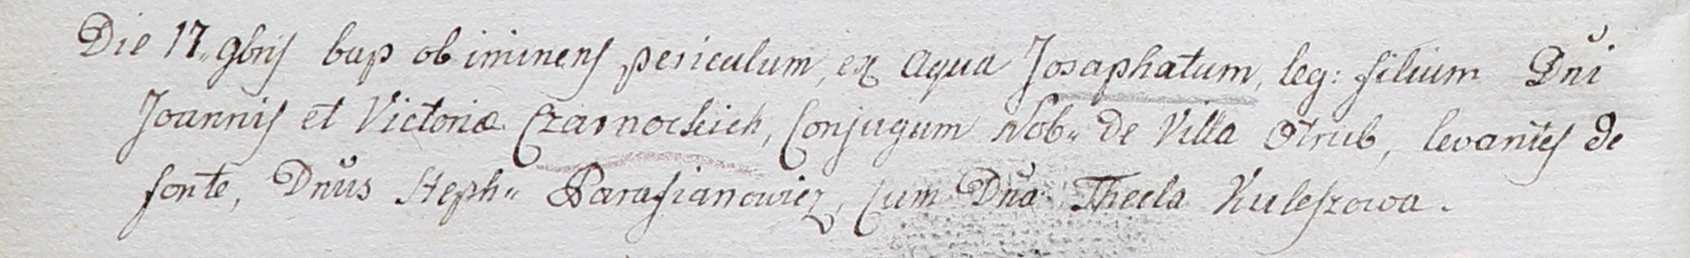 Die 17„ 9bris bap ob iminens periculum, ex Aqua Josaphatum, leg: filium Dni
Joannis et Victoriæ Czarnockich, Conjugum Nob„ de Villa Otrub, levantes de
fonte, Dnus Steph„ Parafianowicz, cum Dna Thecla Kuleszowa.